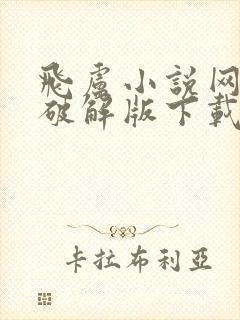 飛盧小説网
破解版下載
卡拉布利亞